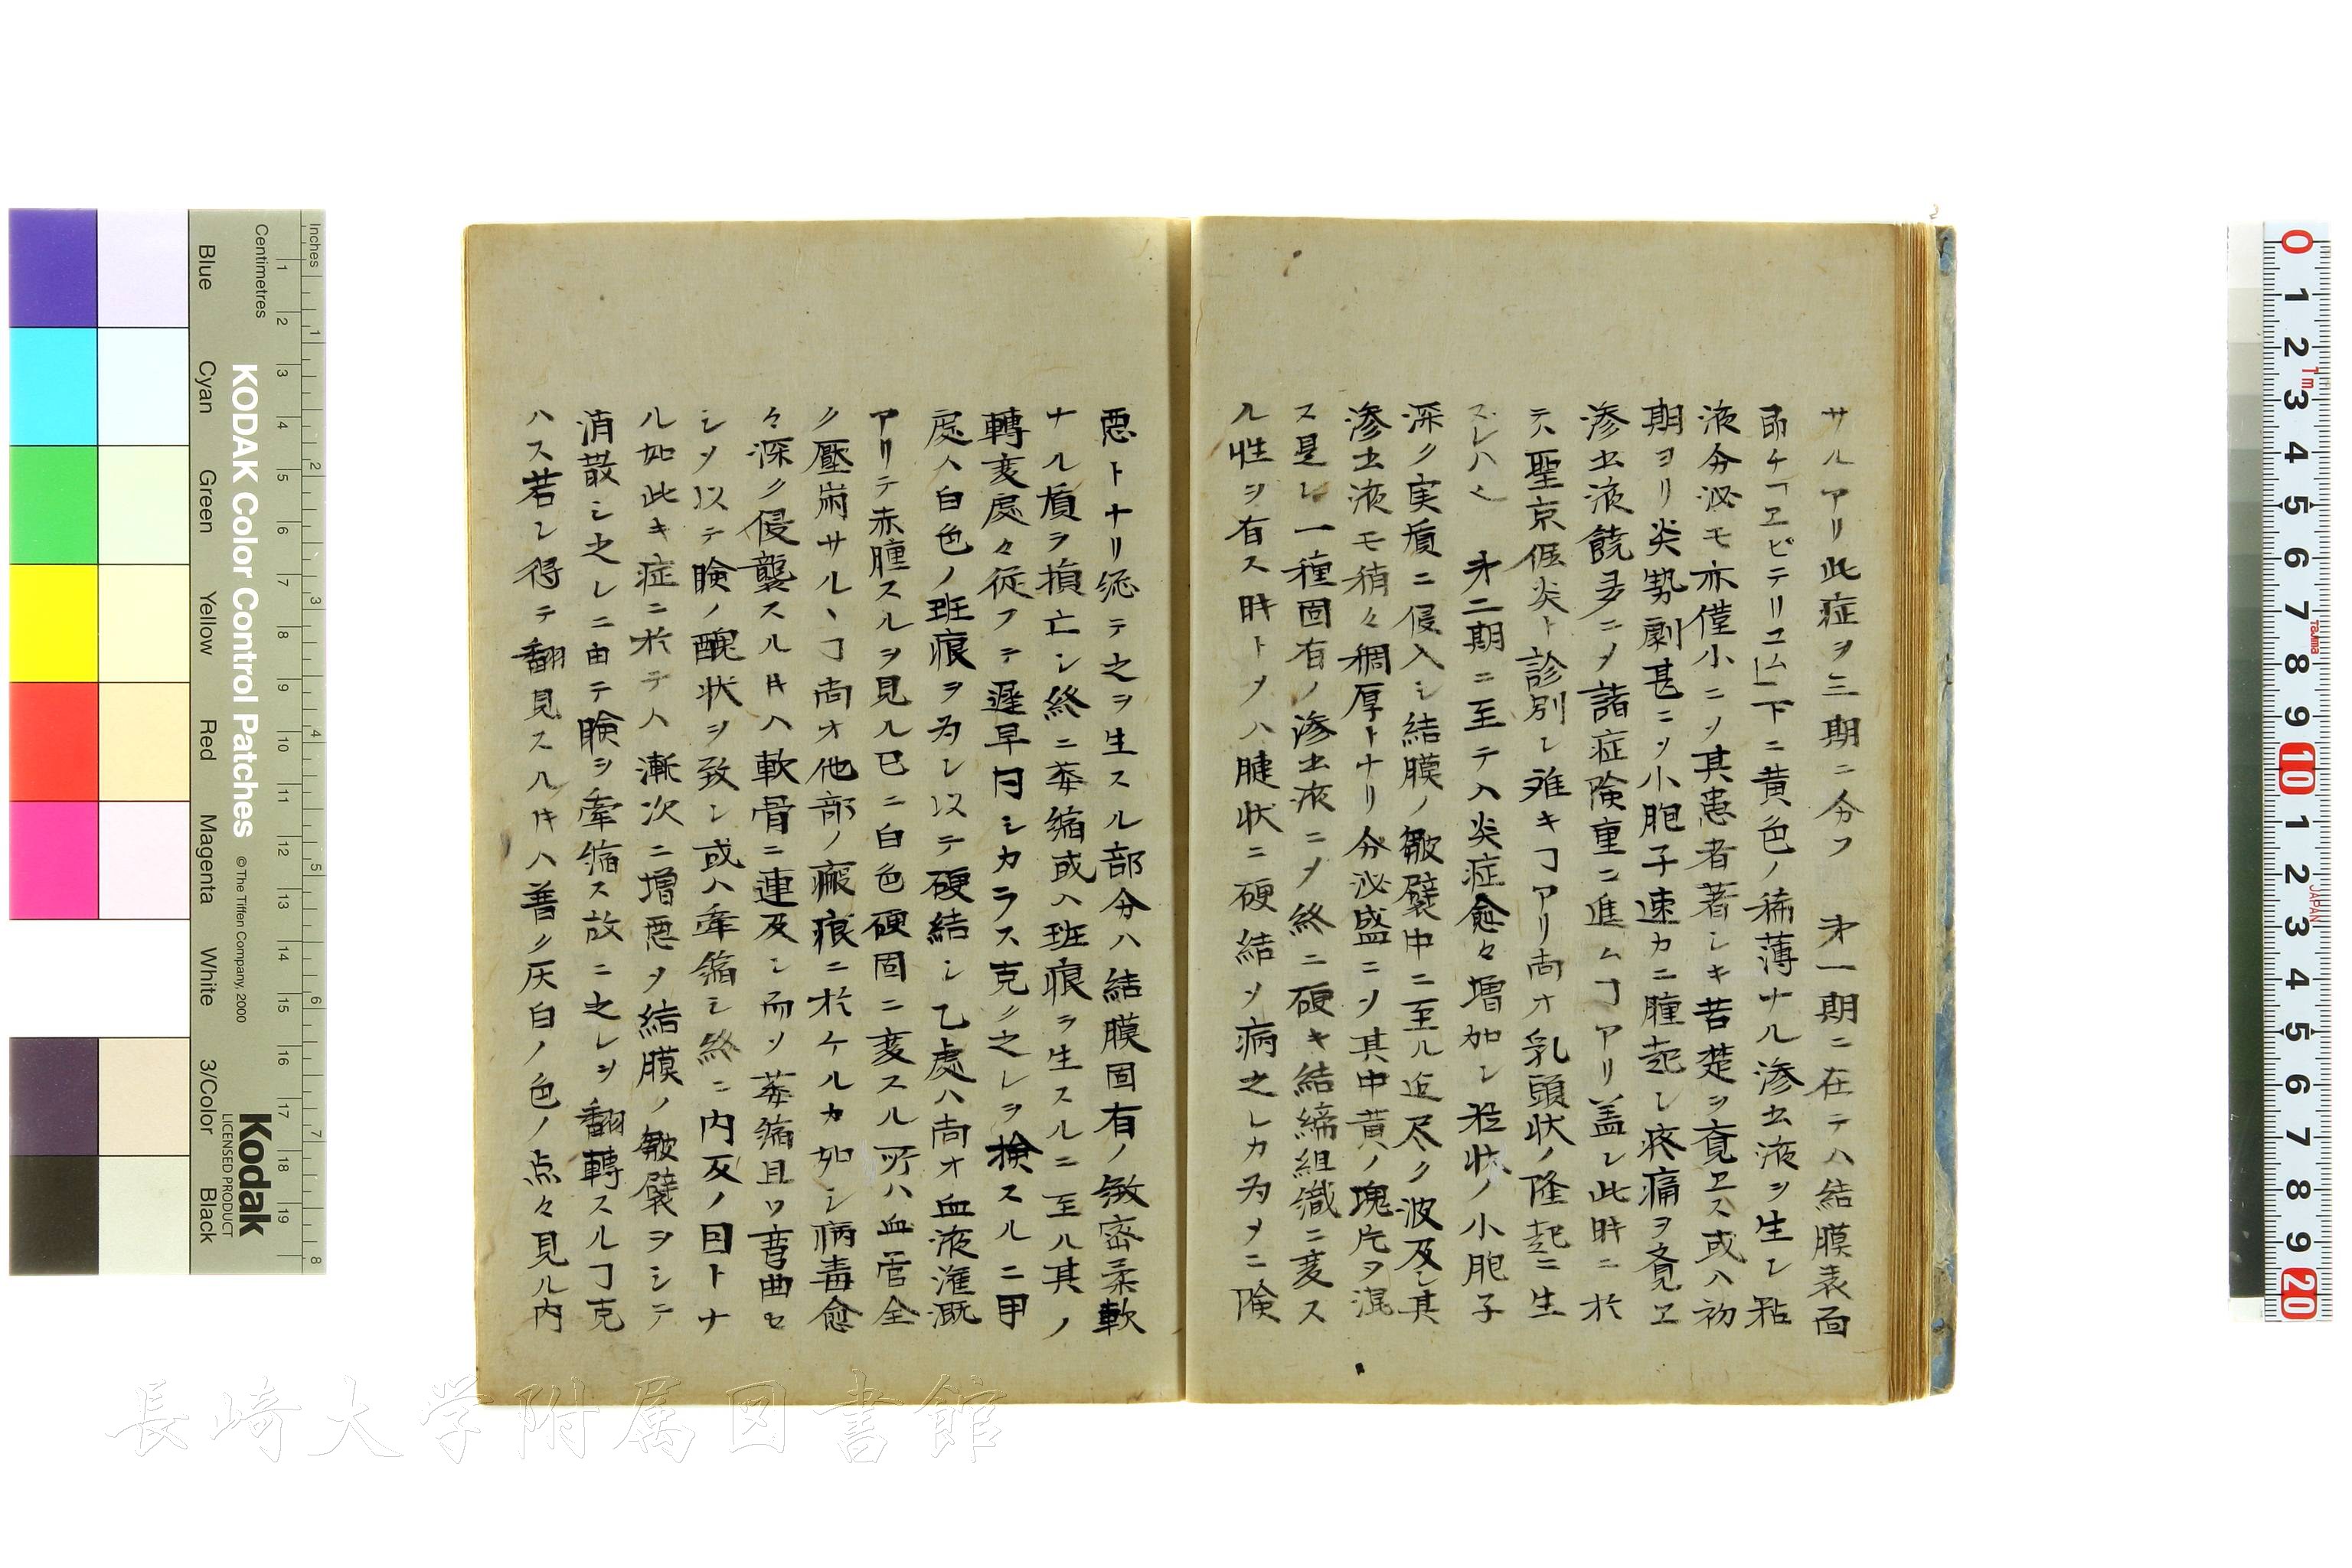 サルアリ此症ヲ三期ニ分フ 㐧一期ニ在テハ結膜表面
即チ「ヱピテリユム」下ニ黄色ノ稀薄ナル滲出液ヲ生シ粘
液分泌モ亦僅小ニメ其患者著シキ苦楚ヲ覚ヱス或ハ初
期ヨリ炎勢劇甚ニメ小胞子速カニ腫起シ疼痛ヲ覚ヱ
滲出液饒多ニメ諸症険重ニ進ムヿアリ盖シ此時ニ於
テハ聖京偎炎ト診別シ难キヿアリ尚オ乳頭状ノ隆起ニ生
スレハ之 㐧二期ニ至テハ炎症愈々増加シ 状ノ小胞子
深ク実質ニ侵入シ結膜ノ皺襞中ニ至ル迄尽ク波及シ其
滲出液モ稍々稠厚トナリ分泌盛ニメ其中黄ノ塊片ヲ混
ス是レ一種固有ノ滲出液ニメ終ニ硬キ結締組織ニ変ス
ル性ヲ有ス時トメハ腱状ニ硬結メ病之レカ為メニ険
悪トナリ総テ之ヲ生スル部分ハ結膜固有ノ緻密柔軟
ナル質ヲ損亡シ終ニ萎縮或ハ班痕ヲ生スルニ至ル其ノ
轉変處々従フテ遅早同シカラス克ク之レヲ検スルニ甲
處ハ白色ノ班痕ヲ為シ以テ硬結シ乙處ハ尚オ血液潅漑
アリテ赤腫スルヲ見ル已ニ白色硬固ニ変スル所ハ血管全
ク壓崩サルヽヿ尚オ他部ノ瘢痕ニ於ケルカ如シ病毒愈
々深ク侵襲スル𪜈ハ軟骨ニ連及シ而メ萎縮且ツ弯曲セ
シメ以テ瞼ノ醜状ヲ致シ或ハ牽縮シ終ニ内反ノ因トナ
ル如此キ症ニ於テハ漸次ニ増悪メ結膜ノ皺襞ヲシテ
消散シ之レニ由テ瞼ヲ牽縮ス故ニ之レヲ翻轉スルヿ克
ハス若シ得テ翻見スル𪜈ハ善ク灰白ノ色ノ点々見ル内
KODAK Color Control Patches
© The Tiffen Company, 2000
Kodak
LICENSED PRODUCT
Inches
Centimetres
Blue
Cyan
Green
Yellow
Red
Magenta
White
3/Color
Black
長崎大学附属図書館